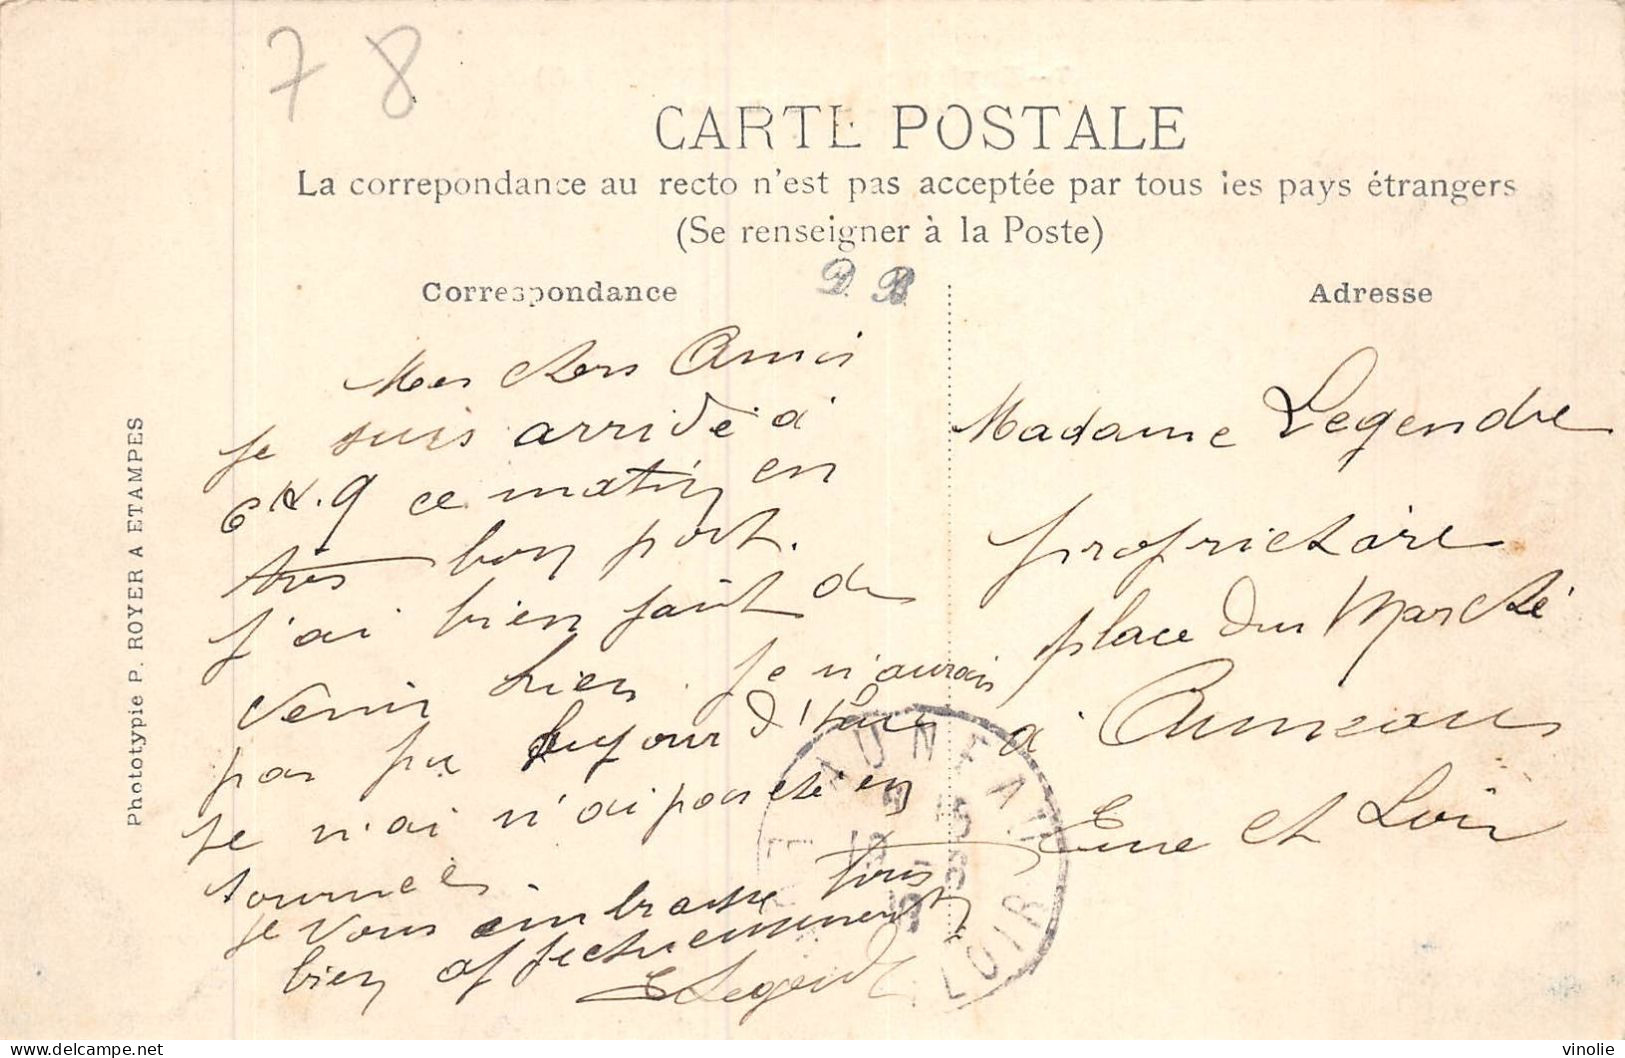 78
CARTE POSTALE
La correpondance au recto n'est pas acceptée par tous les pays étrangers
(Se renseigner à la Poste)
Correspondance
D. B.
Adresse
Photot​ypie P. ROYER A ETAMPES
Mes chers Amis
je suis arrivé à
6 H. 9 ce matin en
très bon port.
j'ai bien fait de
venir hier. je n'aurais
pas pu aujourd'hui
je n'ai
tournée
je vous embrasse tous
bien affectueusement
E Legendre
Madame Legendre
proprietaire
place du Marché
à Auneau
Eure et Loir
AUNEAU
LOIR
delcampe.net
vinolie